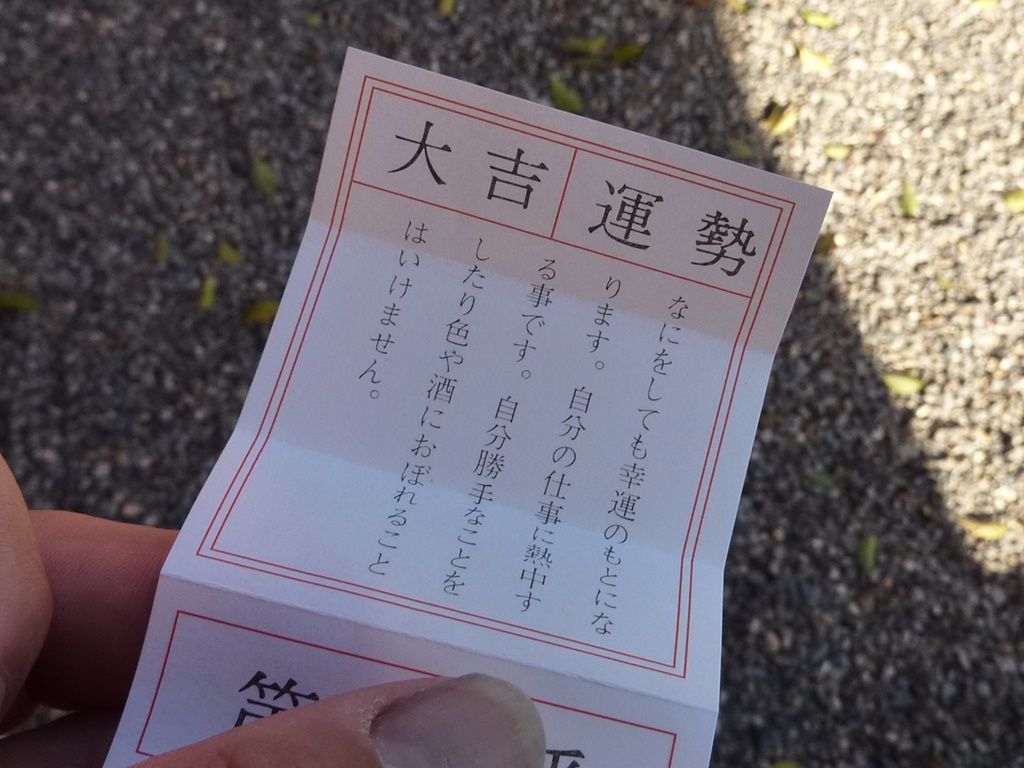 運勢
大吉
なにをしても幸運のもとにな
ります。自分の仕事に熱中す
る事です。自分勝手なことを
したり色や酒におぼれること
はいけません。